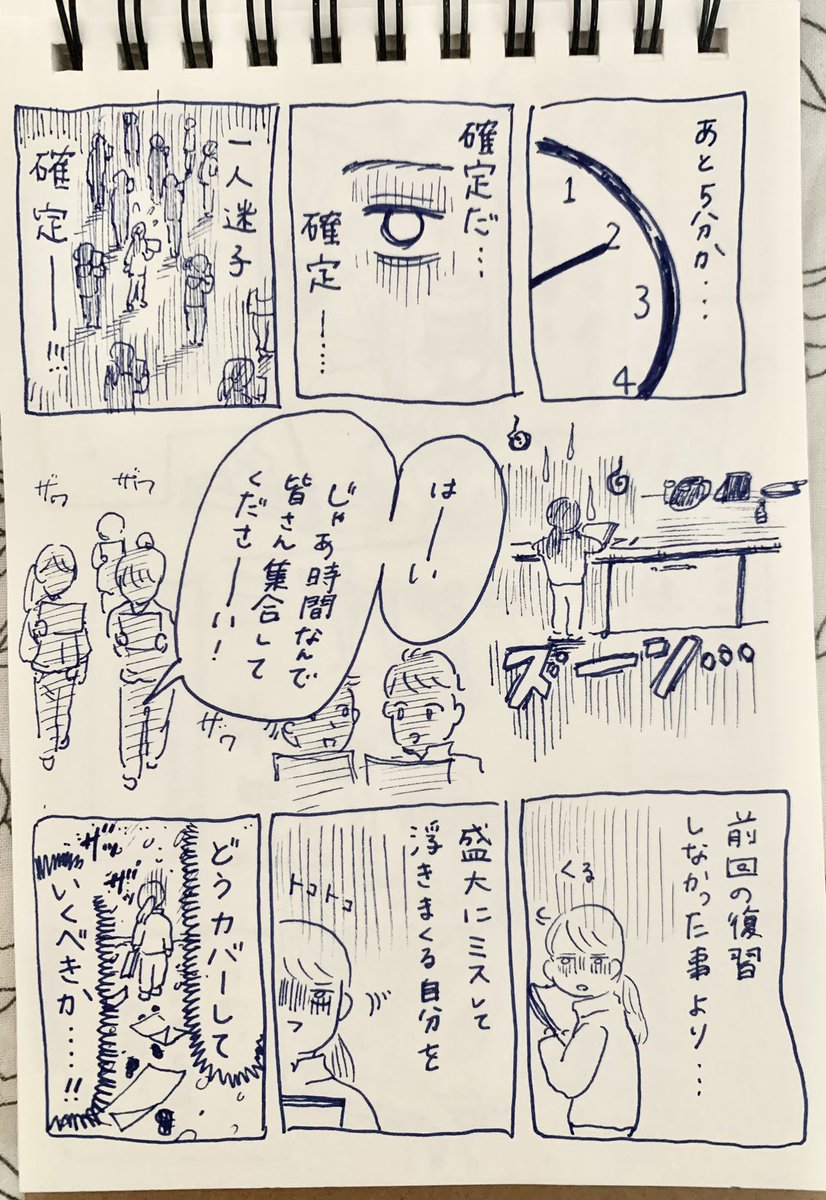 あと5分か…
1
2
3
4
確定だ…
確定ー……
一人迷子
確定ー!!!
ズーン…
はーい
じゃあ時間なんで
皆さん集合して
くださーい!
ザワ
ザワ
ザワ
前回の復習
しなかった事より…
くる
盛大にミスして
浮きまくる自分を
トコトコ
どうカバーして
いくべきか……!!
ザッ
ザッ